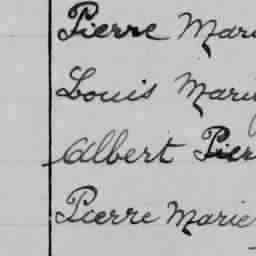 Pierre Mari
Louis Marie
Albert Pier
Pierre Marie